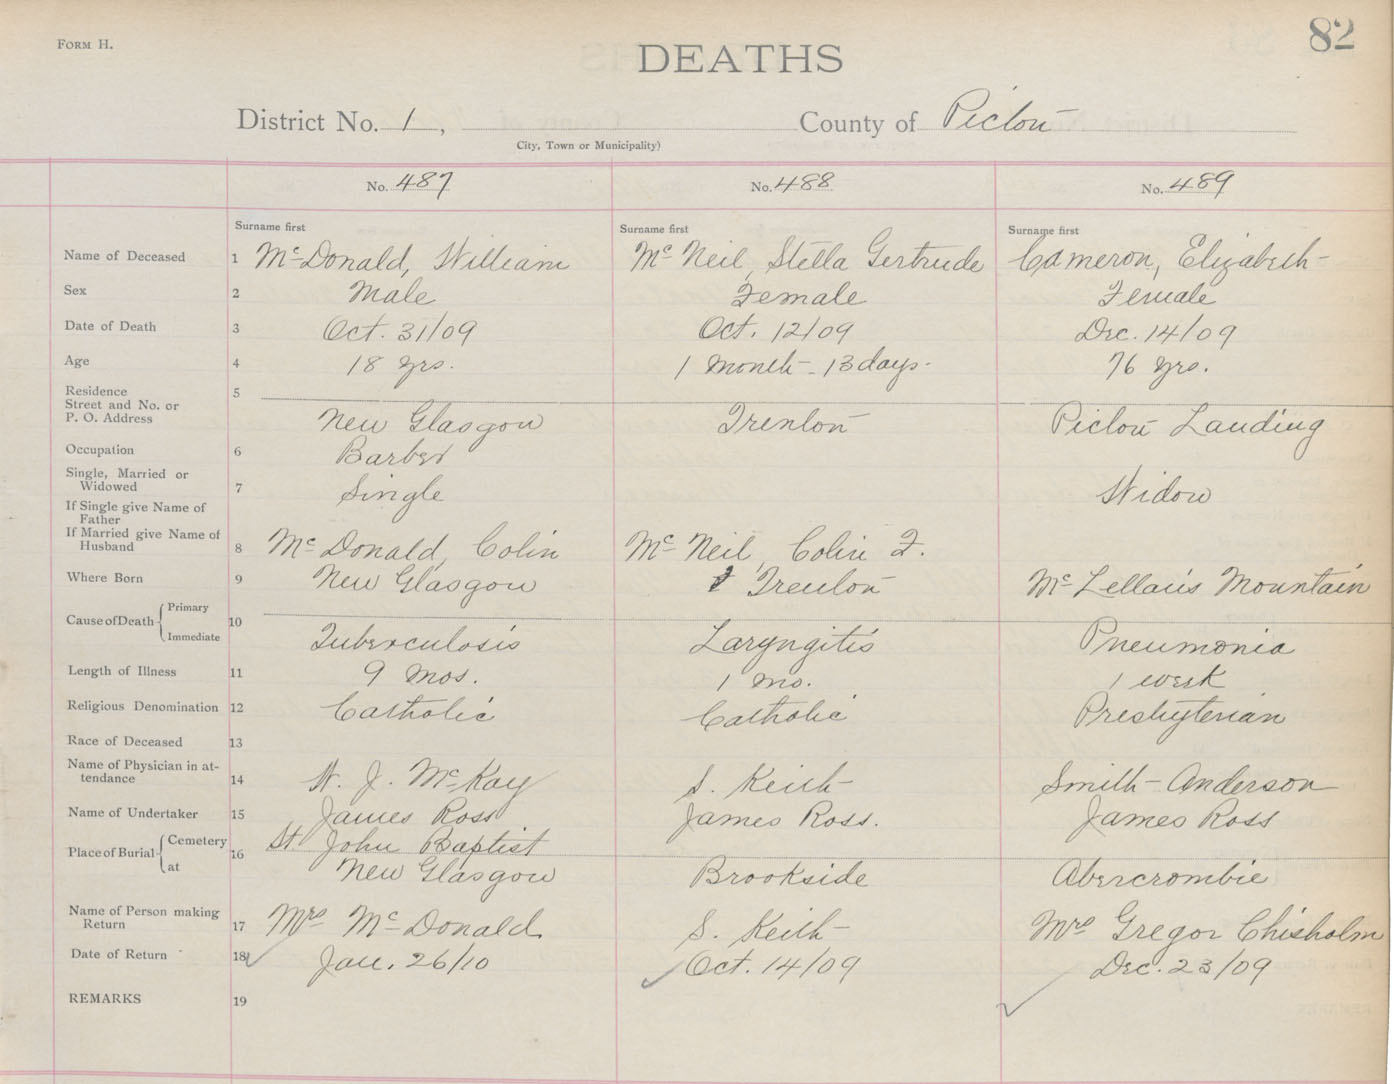 FORM H.
82
DEATHS
District No. 1, County of Pictou
City, Town or Municipality)
No. 487 No. 488 No. 489
Surname first Surname first Surname first
Name of Deceased 1 McDonald, William McNeil, Stella Gertrude Cameron, Elizabeth
Sex 2 Male Female Female
Date of Death 3 Oct. 31/09 Oct. 12/09 Dec. 14/09
Age 4 18 yrs. 1 month - 13 days. 76 yrs.
Residence 5
Street and No. or
P. O. Address New Glasgow Trenton Pictou Landing
Occupation 6 Barber
Single, Married or
Widowed 7 Single Widow
If Single give Name of
Father
If Married give Name of
Husband 8 McDonald, Colin McNeil, Colin F.
Where Born 9 New Glasgow Trenton McLellan's Mountain
Cause of Death Primary
10
Immediate Tuberculosis Laryngitis Pneumonia
Length of Illness 11 9 mos. 1 mo. 1 week
Religious Denomination 12 Catholic Catholic Presbyterian
Race of Deceased 13
Name of Physician in at-
tendance 14 W. J. McKay S. Keith Smith - Anderson
Name of Undertaker 15 James Ross James Ross. James Ross
Place of Burial Cemetery 16 St John Baptist
at New Glasgow Brookside Abercrombie
Name of Person making
Return 17 Mrs McDonald S. Keith Mrs Gregor Chisholm
Date of Return 18 Jan. 26/10 Oct. 14/09 Dec. 23/09
REMARKS 19